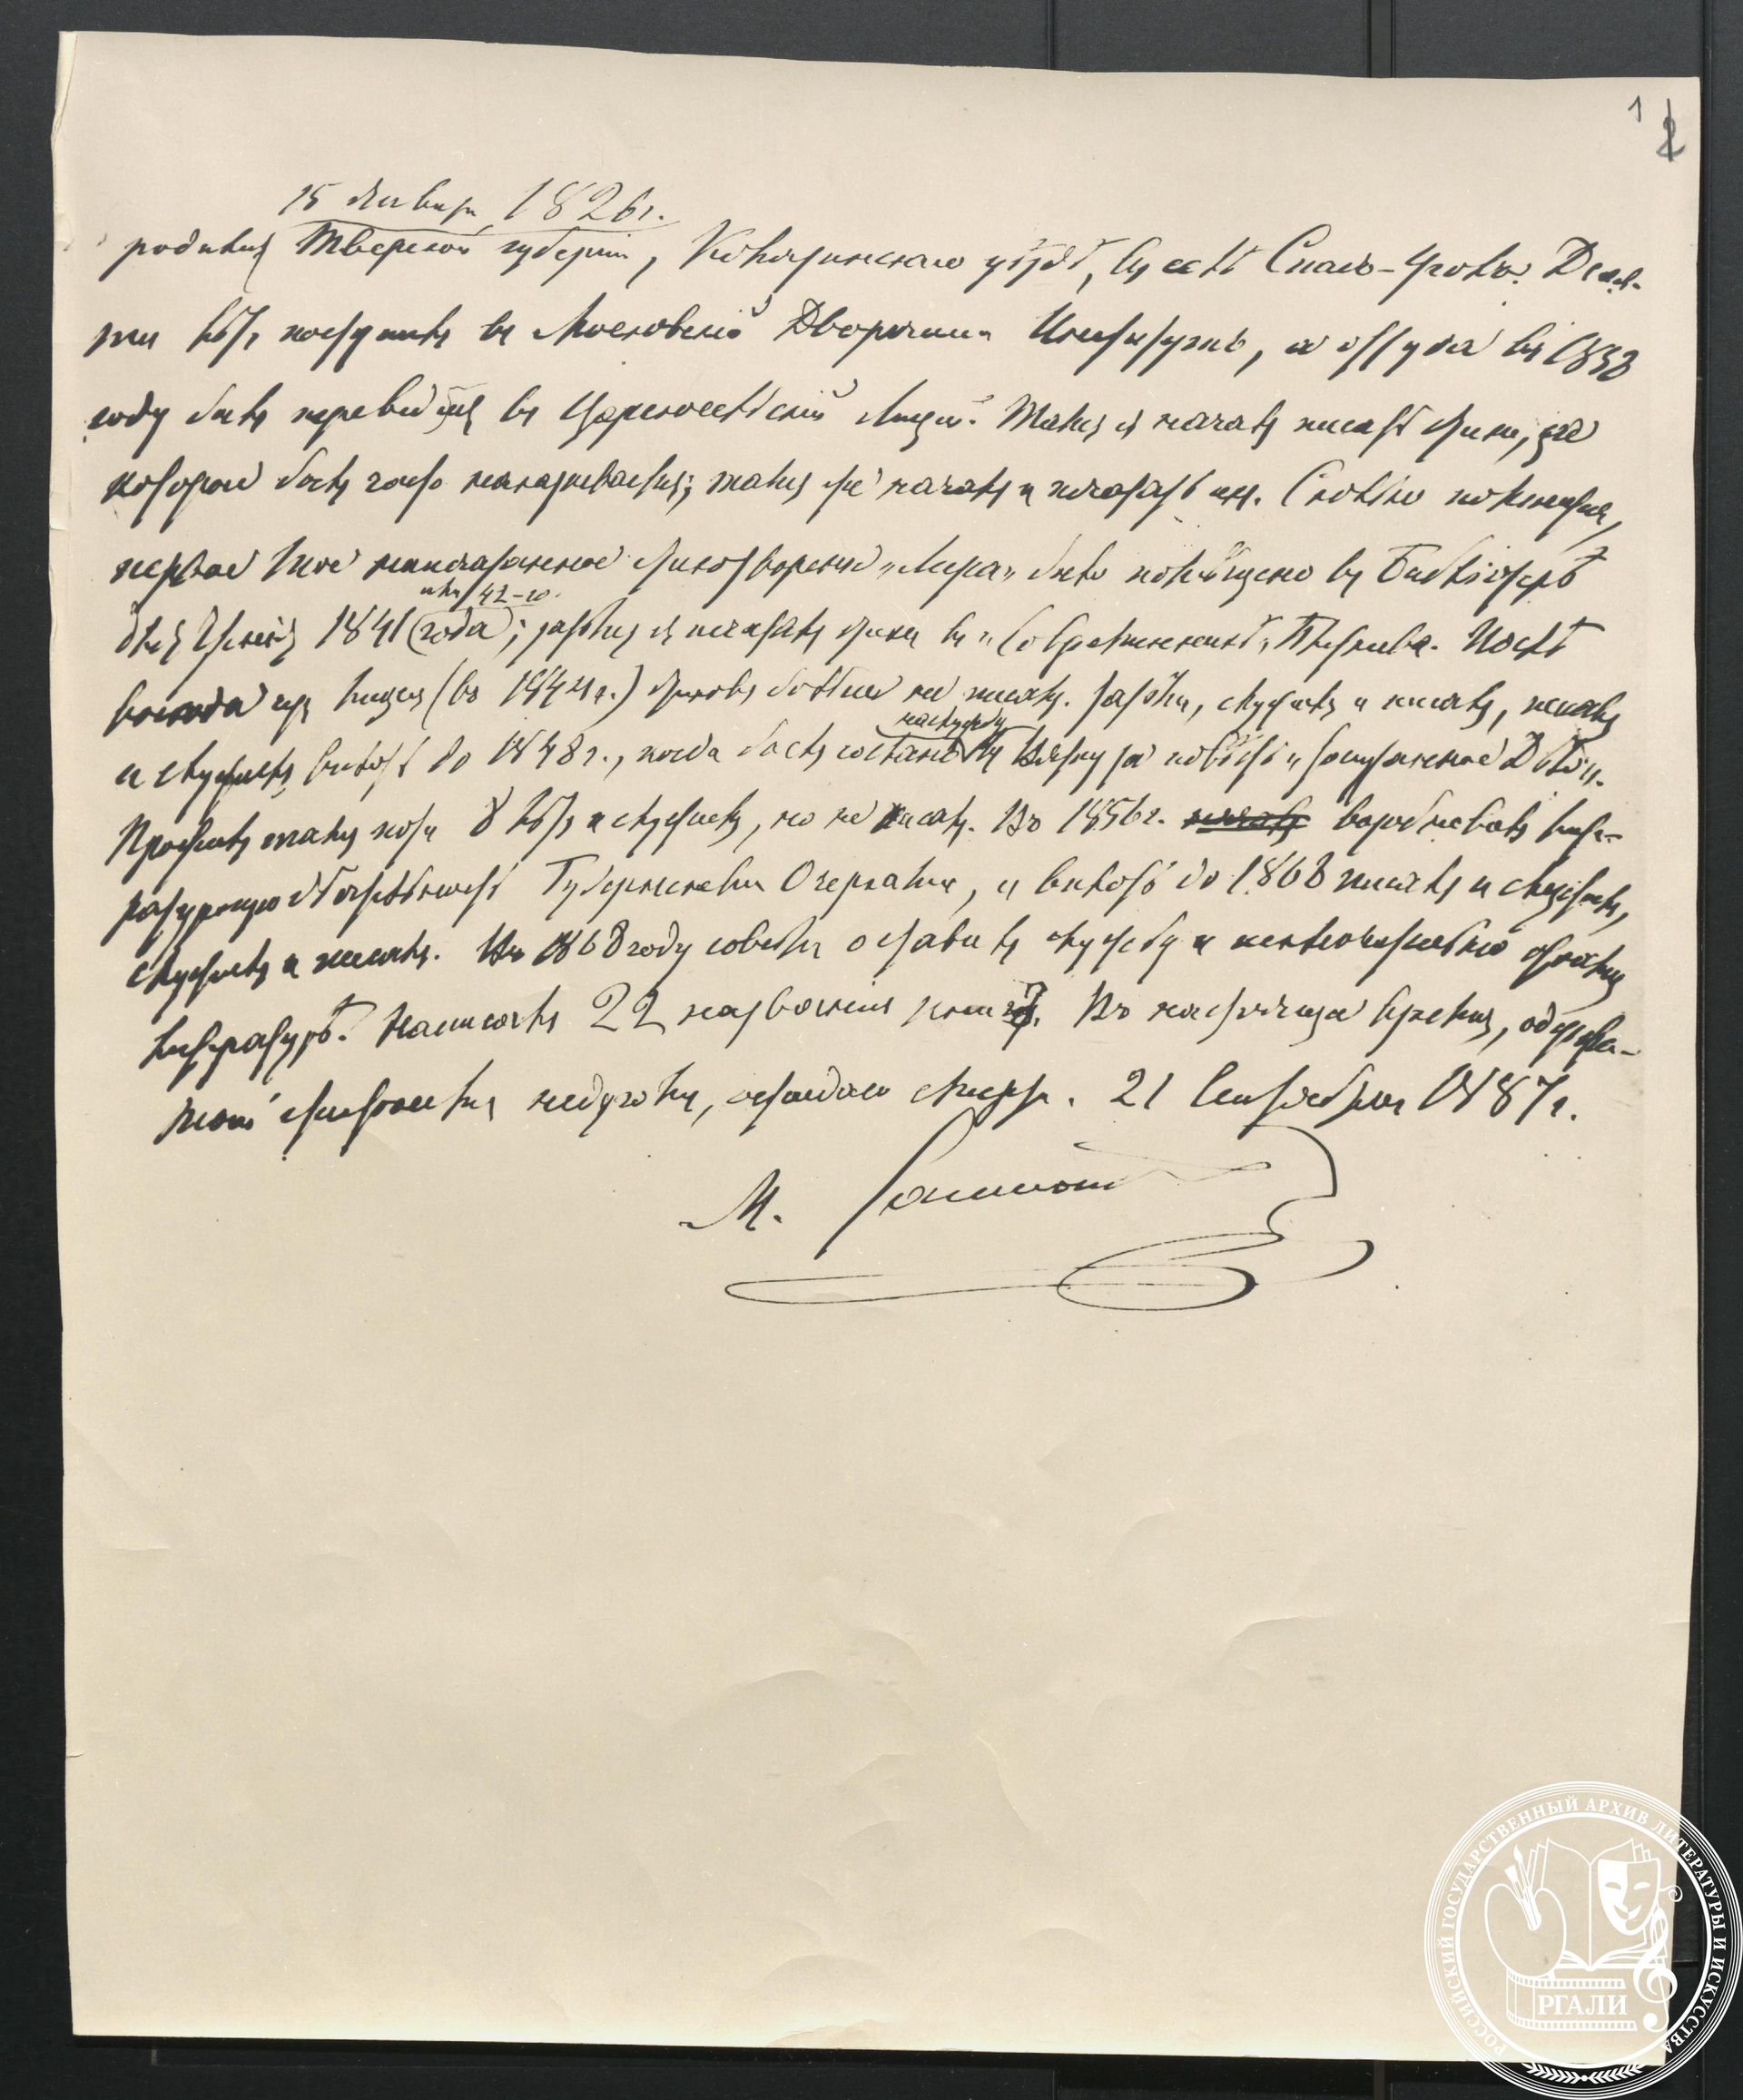 1 2
15 Января 1826 г.
родился Тверской губернии, Колязинскаго уѣзда, въ селѣ Спасъ-Уголъ. Деся-
ти лѣтъ поступилъ въ Московскій Дворянскій Институтъ, а оттуда въ 1838
году былъ переведенъ въ Царскосельскій Лицей. Тамъ я началъ писать стихи, за
которые былъ часто наказываемъ; тамъ же началъ и печатать ихъ. Сколько помнится,
первое мое напечатанное стихотвореніе „Лира" было помѣщено въ Библіотекѣ
или 42-го
для Чтенія 1841 (года); затѣмъ я печаталъ стихи въ „Современникѣ" Плетнева. Послѣ
выхода изъ лицея (въ 1844 г.) стиховъ больше не писалъ. Затѣмъ, служилъ и писалъ, писалъ
на службу
и служилъ вплоть до 1848 г., когда былъ сосланъ въ Вятку за повѣсть „Запутанное Дѣло".
Прожилъ тамъ почти 8 лѣтъ и служилъ, но не писалъ. Въ 1856 г. началъ возобновилъ лите-
ратурную дѣятельность Губернскими Очерками, и вплоть до 1868 писалъ и служилъ,
служилъ и писалъ. Въ 1868 году совсѣмъ оставилъ службу и исключительно отдался
литературѣ. Написалъ 22 названія книгъ. Въ настоящее время, одержи-
мый жестокимъ недугомъ, ожидаю смерти. 21 Сентября 1887 г.
М. Салтыковъ
РОССИЙСКИЙ ГОСУДАРСТВЕННЫЙ АРХИВ ЛИТЕРАТУРЫ И ИСКУССТВА
РГАЛИ